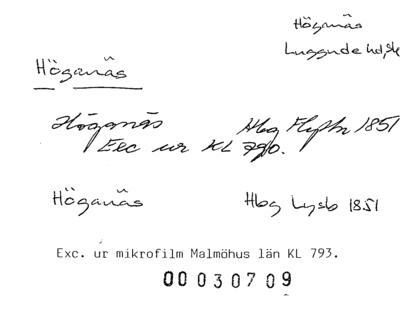 Höganäs
Luggude hd, Sk
Höganäs
Höganäs Hbg Flyttn 1851
Exc ur KL 790.
Höganäs Hbg Lysb 1851
Exc. ur mikrofilm Malmöhus län KL 793.
00030709